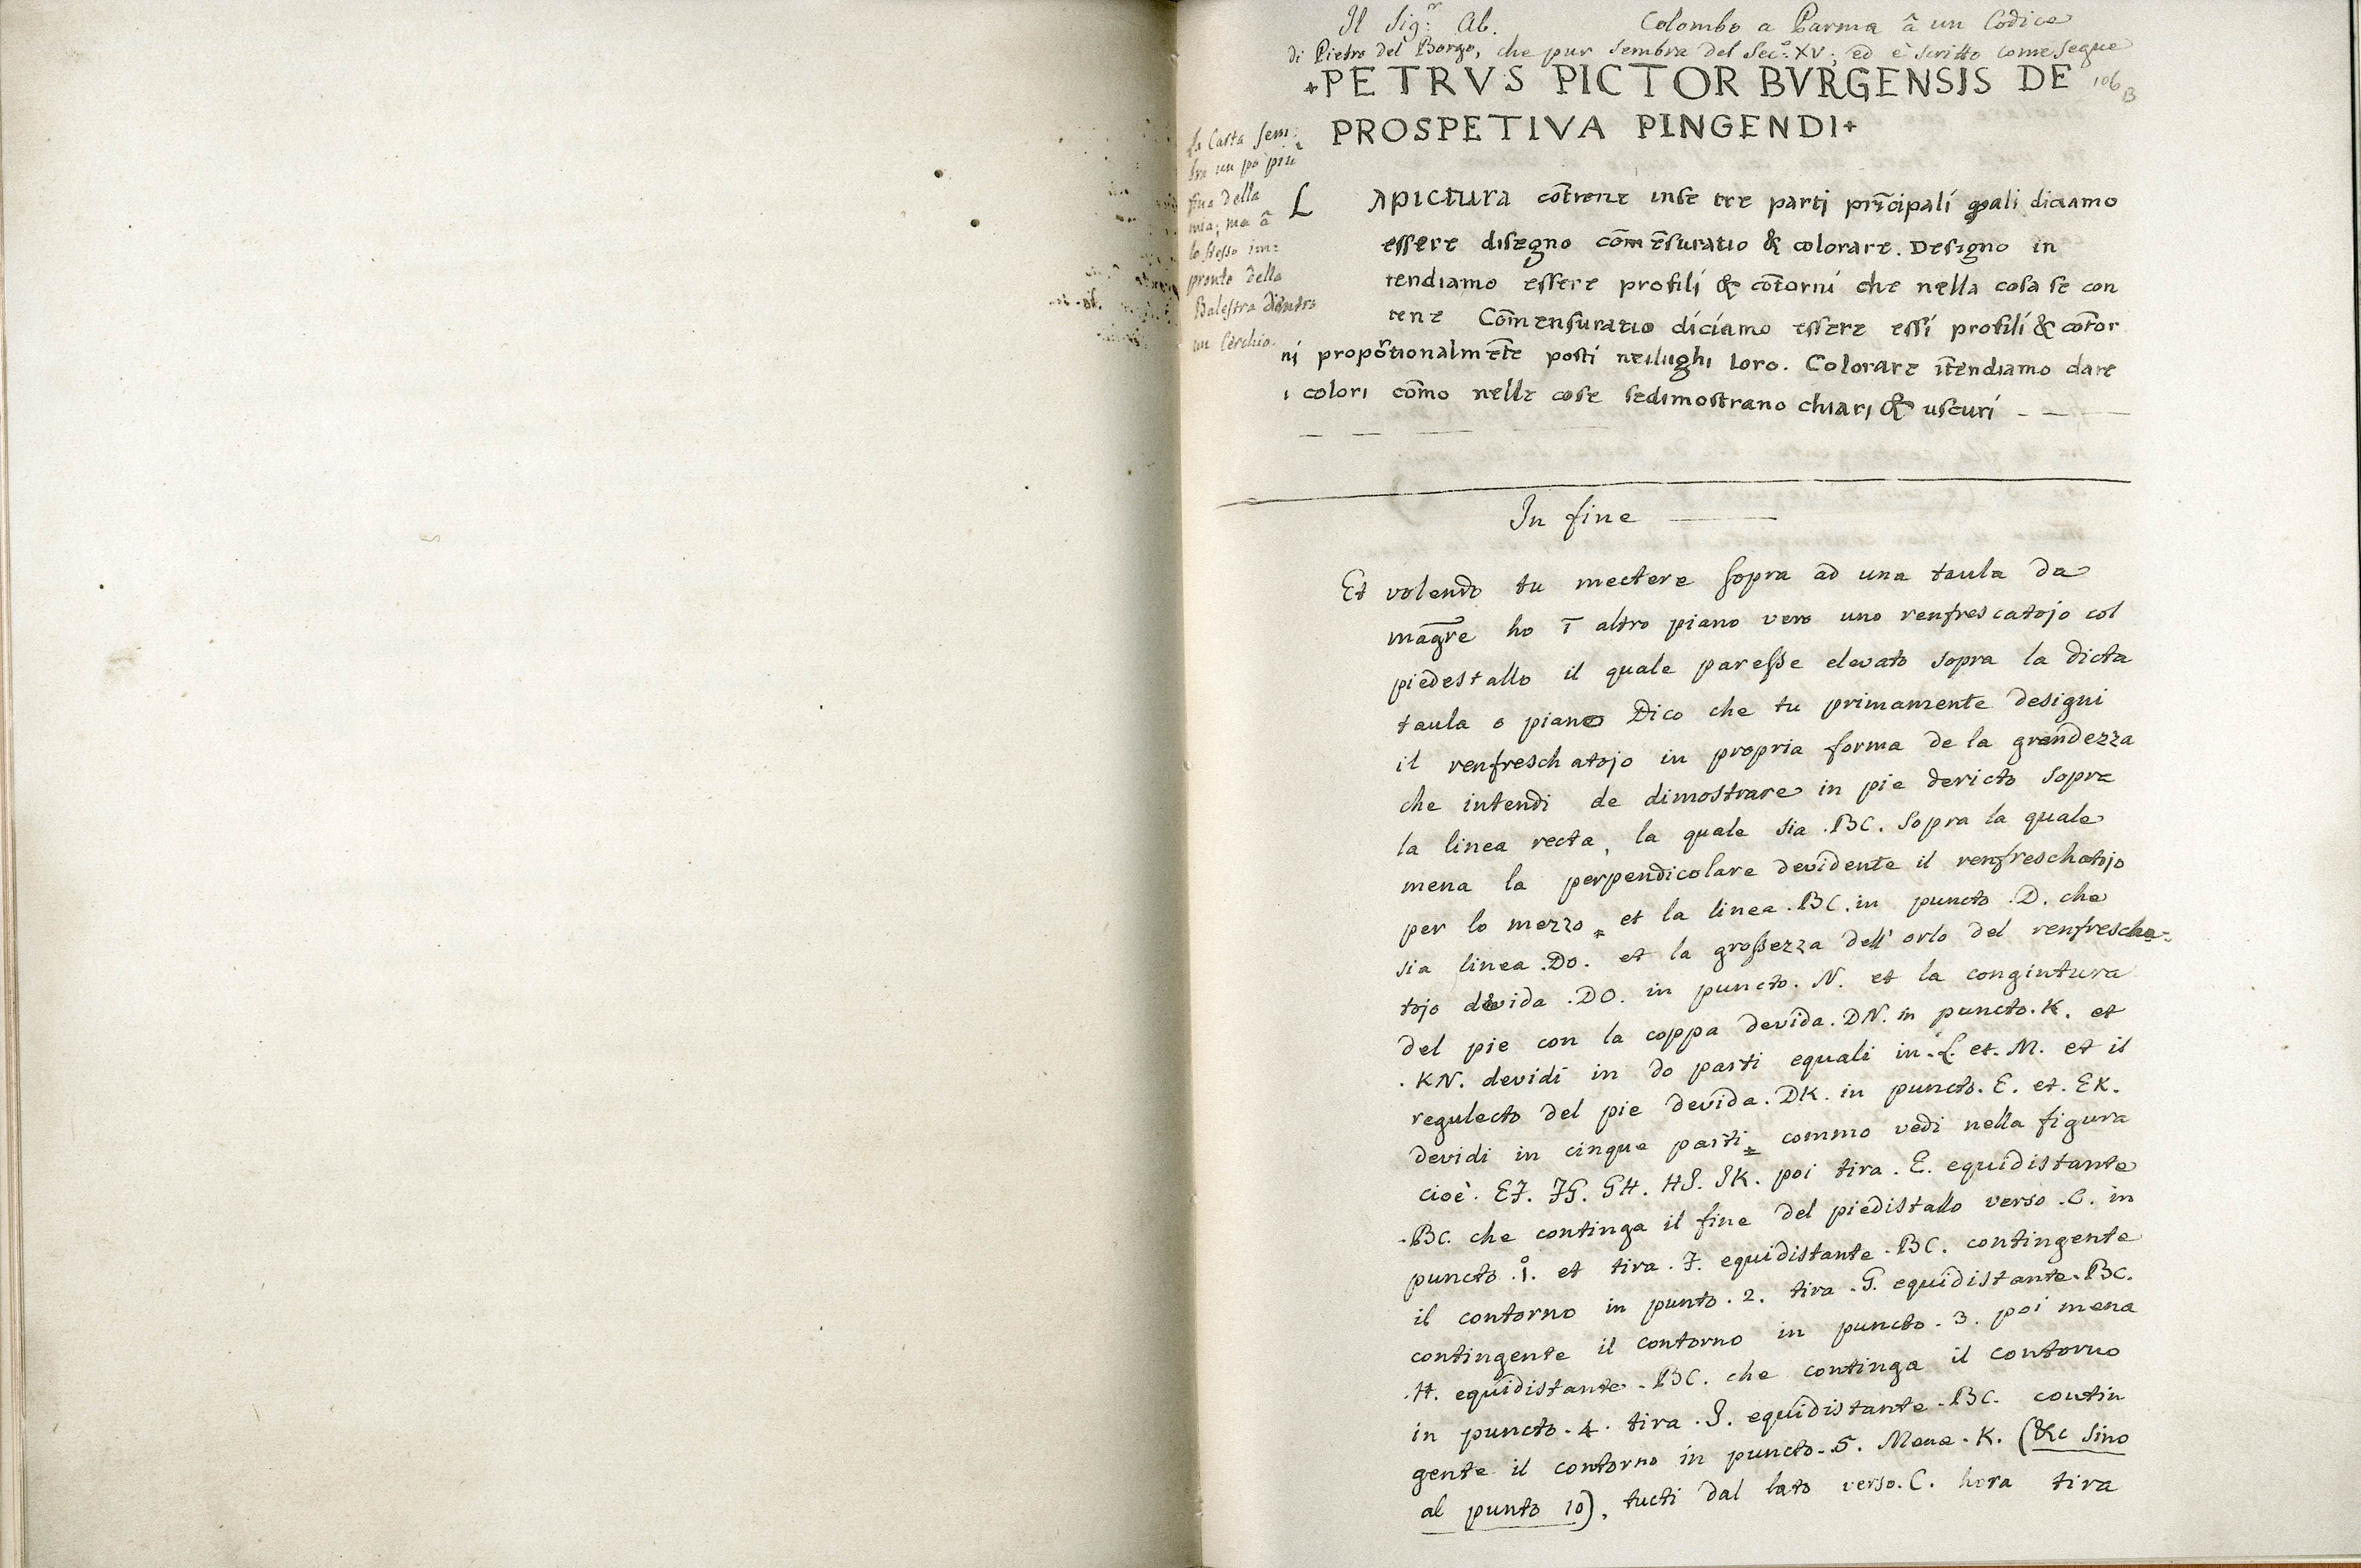 Il Sig:r Ab. Colombo a Parma â un Codice
di Pietro del Borgo, che pur sembra del Sec.o XV; ed è scritto come segue
+PETRVS PICTOR BVRGENSIS DE
106
B
PROSPETIVA PINGENDI+
la Carta sem:
bra un pò più
fina della
mia; ma â
lo stesso im:
pronto della
Balestra dentro
un Cerchio.
L apictura cōtiene inse tre parti prīcipali quali diciamo
essere disegno cōmēsuratio & colorare. Designo in
tendiamo essere profili & cōtorni che nella cosa se con
tene Cōmensuratio diciamo essere essi profili & cōtor
ni propōtionalmēte posti neilughi loro. Colorare ītendiamo dare
i colori cōmo nelle cose sedimostrano chiari & uscuri - — —
In fine
Et volendo tu mectere sopra ad una taula da
magr̄e ho ī altro piano vero uno renfrescatojo col
piedestallo il quale paresse elevato sopra la dicta
taula o piano Dico che tu primamente designi
il renfreschatojo in propria forma de la grandezza
che intendi de dimostrare in pie dericto sopra
la linea recta, la quale sia .BC. sopra la quale
mena la perpendicolare devidente il renfreschatojo
per lo mezzo = et la linea .BC. in puncto .D. che
sia linea .DO. et la grossezza dell' orlo del renfrescha=
tojo devida .DO. in puncto. N. et la congintura
del pie con la coppa devida .DN. in puncto. K. et
. KN. devidi in do parti equali in .L. et. M. et il
regulecto del pie devida. DK. in puncto. E. et. EK.
devidi in cinque parti = commo vedi nella figura
cioè. EF. FG. GH. HI. IK. poi tira . E. equidistante
.BC. che continga il fine del piedistallo verso .C. in
puncto .1. et tira . F. equidistante .BC. contingente
il contorno in punto. 2. tira .G. equidistante .BC.
contingente il contorno in puncto. 3. poi mena
.H. equidistante .BC. che continga il contorno
in puncto. 4. tira .I. equidistante .BC. contin
gente il contorno in puncto. 5. Mena .K. (&c sino
al punto 10), tucti dal lato verso .C. hora tira